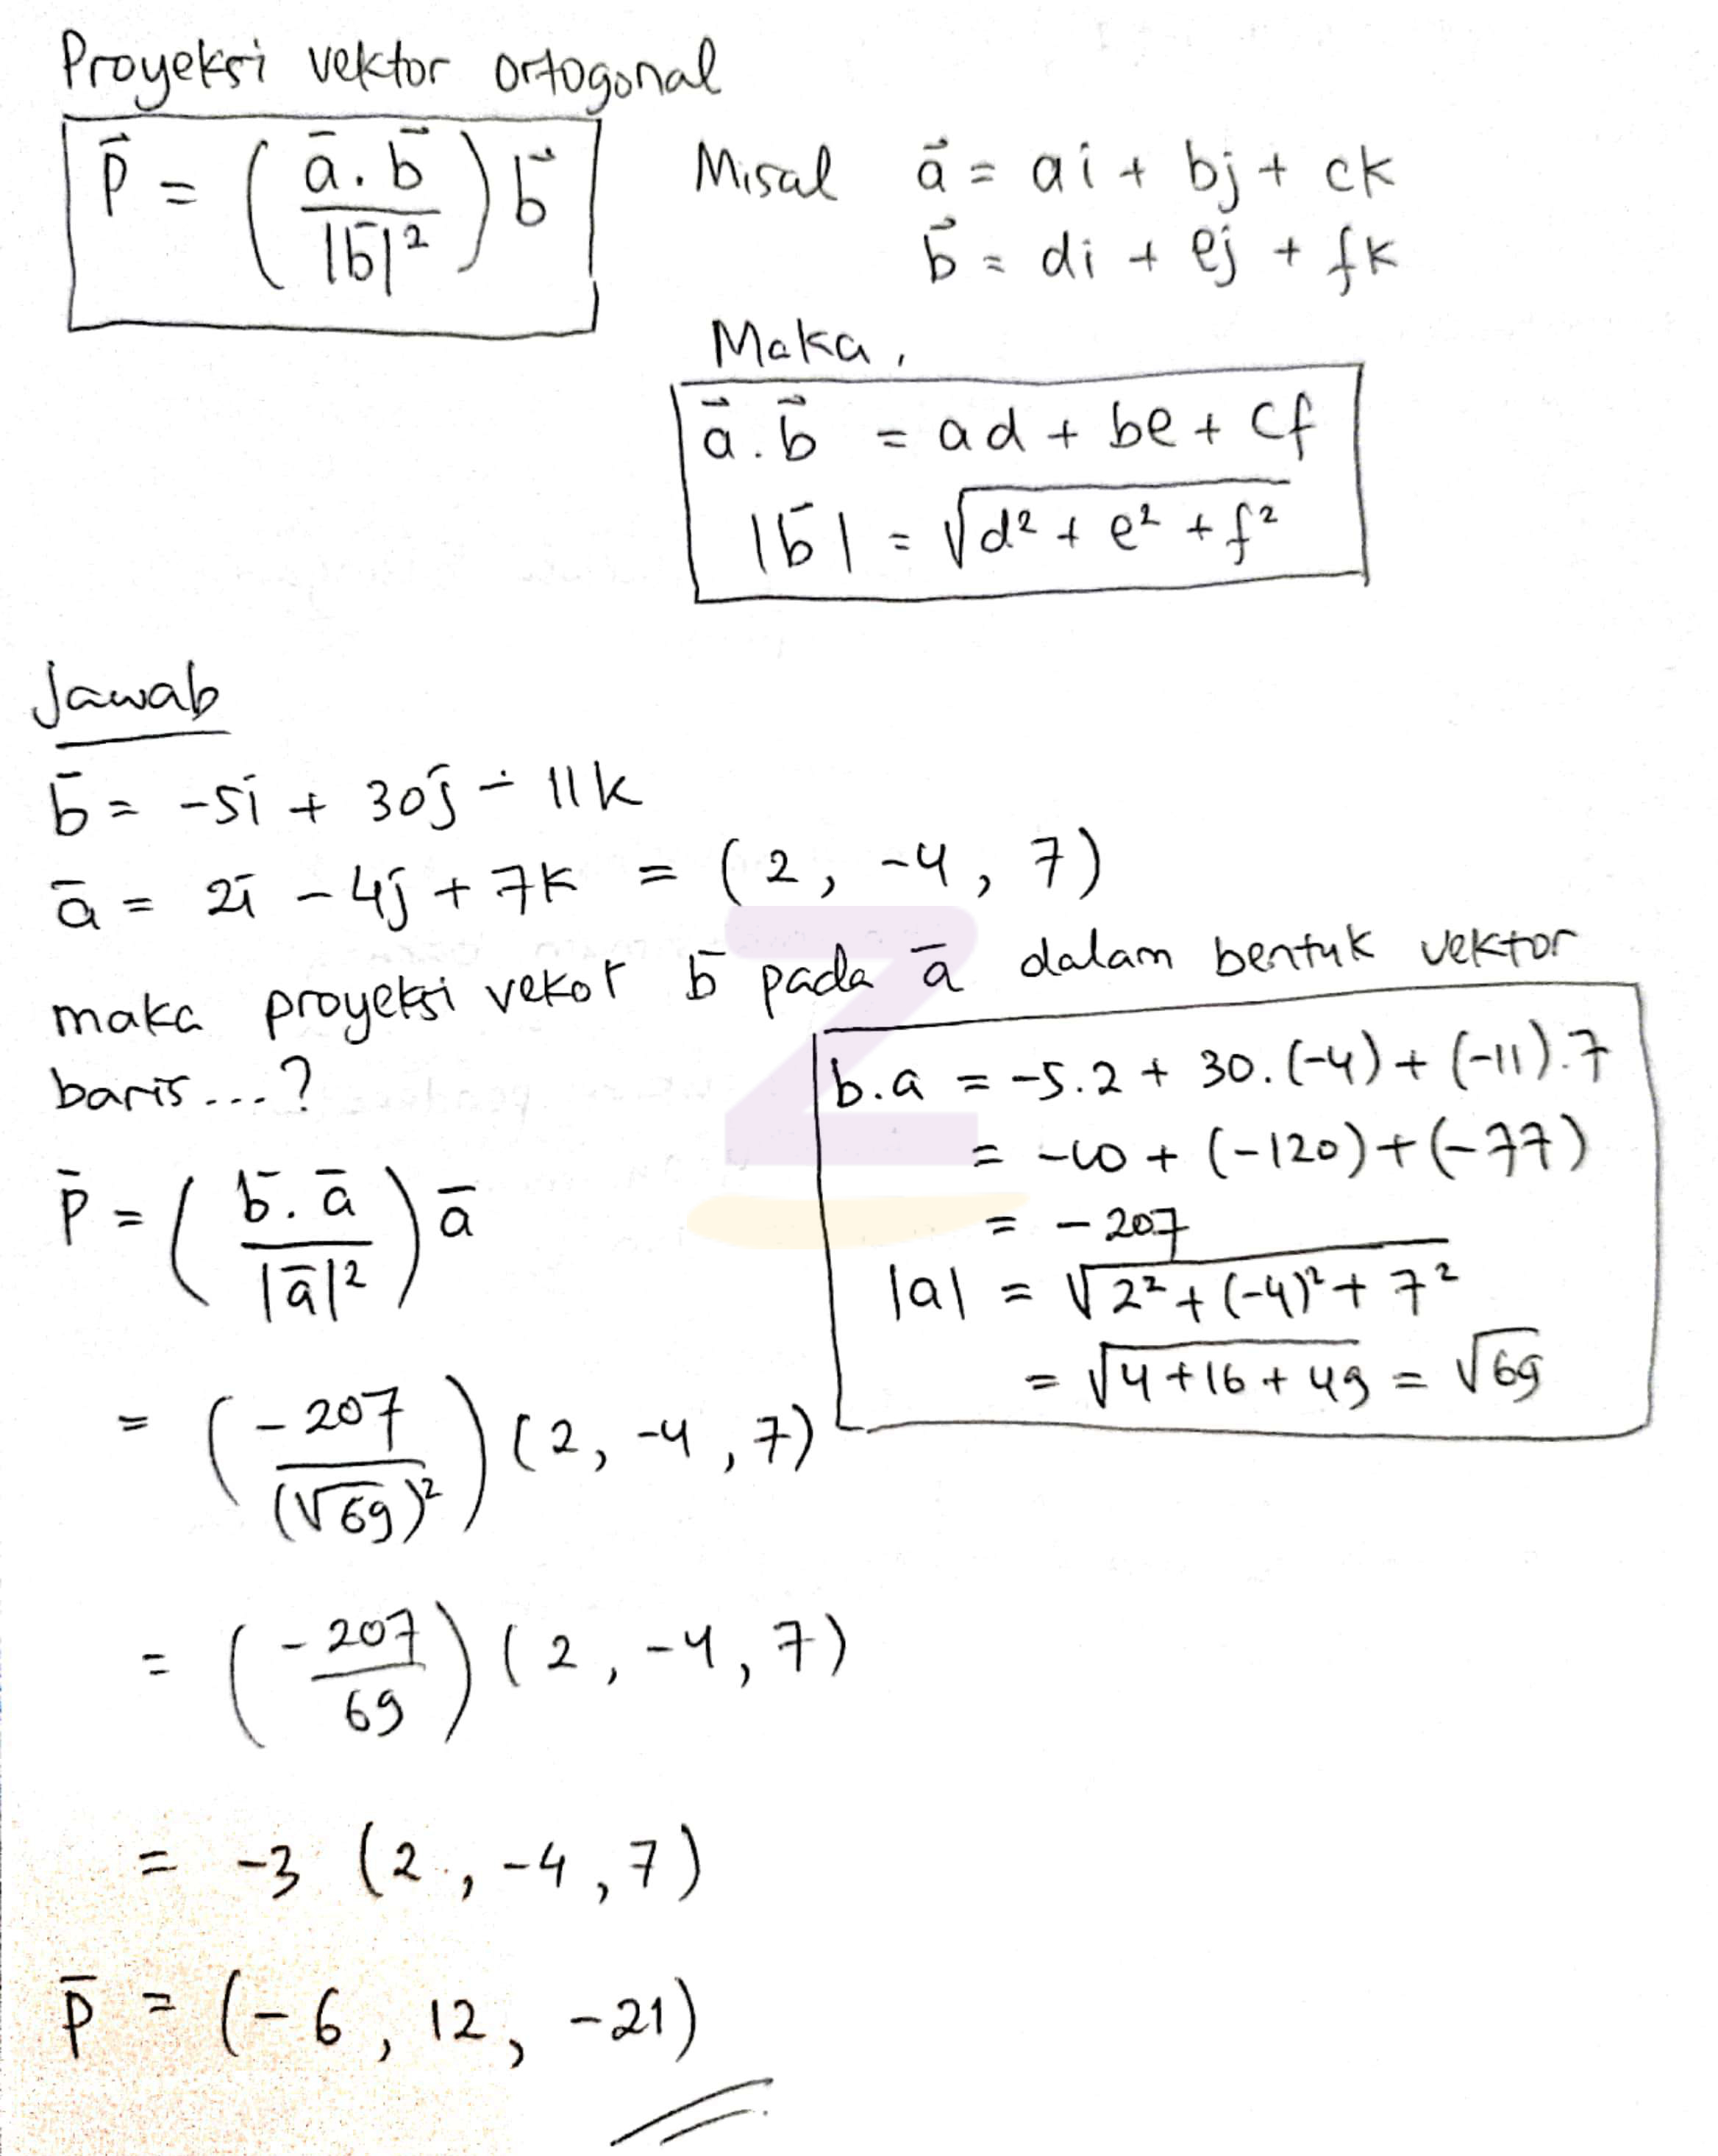 Proyeksi vektor ortogonal
p⃗ = ( a̅ . b⃗ / |b̅|² ) b⃗
Misal a⃗ = ai + bj + ck
b⃗ = di + ej + fk
Maka,
a⃗ . b⃗ = ad + be + cf
|b̅| = √(d² + e² + f²)
Jawab
b̅ = -5i + 30j - 11k
a̅ = 2i - 4j + 7k = (2, -4, 7)
maka proyeksi vekor b̅ pada a̅ dalam bentuk vektor
baris...?
b.a = -5.2 + 30.(-4) + (-11).7
= -10 + (-120) + (-77)
= -207
|a| = √(2² + (-4)² + 7²)
= √(4+16+49) = √69
p̅ = ( b̅ . a̅ / |a̅|² ) a̅
= ( -207 / (√69)² ) (2, -4, 7)
= ( -207 / 69 ) (2, -4, 7)
= -3 (2, -4, 7)
p̅ = (-6, 12, -21)